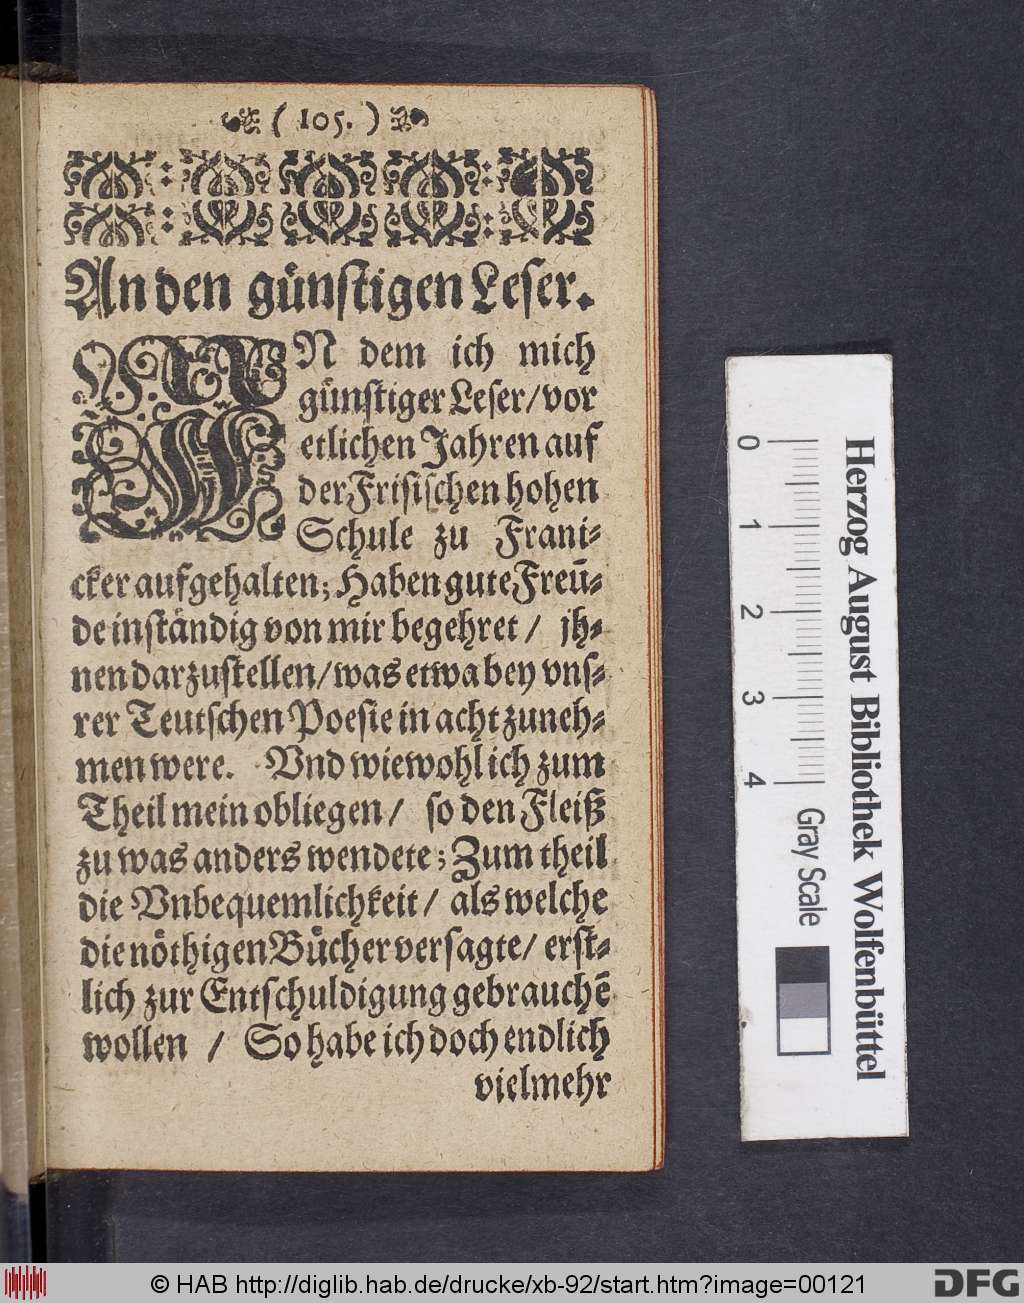 ( 105. )
An den günstigen Leser.
WEN dem ich mich
günstiger Leser/vor
etlichen Jahren auf
der Frisischen hohen
Schule zu Frani-
cker aufgehalten; Haben gute Freū-
de inständig von mir begehret / jh-
nen darzustellen/was etwa bey vns-
rer Teutschen Poesie in acht zuneh-
men were. Vnd wiewohl ich zum
Theil mein obliegen / so den Fleiß
zu was anders wendete; Zum theil
die Vnbequemlichkeit / als welche
die nöthigen Bücher versagte / erst-
lich zur Entschuldigung gebrauchē
wollen / So habe ich doch endlich
vielmehr
0 1 2 3 4
Gray Scale
Herzog August Bibliothek Wolfenbüttel
© HAB http://diglib.hab.de/drucke/xb-92/start.htm?image=00121
DFG